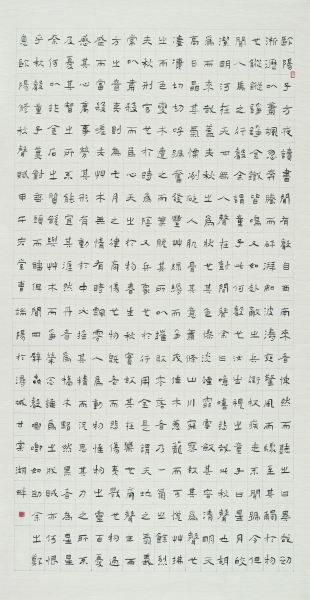 歐陽子方夜讀書聞有聲自西南來者悚然而聽之曰異哉初
淅瀝以蕭颯忽奔騰而砰湃如波濤夜驚風雨驟至其觸於物
也鏦鏦錚錚金鐵皆鳴又如赴敵之兵銜枚疾走不聞號令但
聞人馬之行聲余謂童子此何聲也汝出視之童子曰星月皎
潔明河在天四無人聲聲在樹間余曰噫嘻悲哉此秋聲也胡
為而來哉蓋夫秋之為狀也其色慘淡煙霏雲斂其容清明天
高日晶其氣慄冽砭人肌骨其意蕭條山川寂寥故其為聲也
淒淒切切呼號憤發豐草綠縟而爭茂佳木蔥蘢而可悅草拂
之而色變木遭之而葉脫其所以摧敗零落者乃一氣之餘烈
夫秋刑官也於時為陰又兵象也於行用金是謂天地之義
方之音夷則為七月之律商傷也物既老而悲傷夷戮也物過
盛而當殺嗟乎草木無情有時飄零人為動物惟物之靈百憂
感其心萬事勞其形有動於中必搖其精而況思其力之所不
及憂其智之所不能宜其渥然丹者為槁木黟然黑者為星星
奈何以非金石之質欲與草木而爭榮念誰為之戕賊亦何恨
乎秋聲童子莫對垂頭而睡但聞四壁蟲聲唧唧如助余之歎
息歐陽修秋聲賦甲午端陽於潯城甘棠湖畔